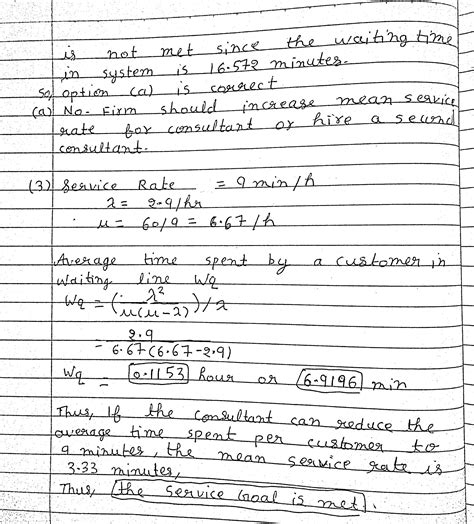 is not met since the waiting time
in system is 16.572 minutes.
So, option (a) is correct
(a) No. Firm should increase mean service
rate for consultant or hire a second
consultant.
(3) Service Rate = 9 min/h
λ = 2.9/hr
∴ μ = 60/9 = 6.67/h
Average time spent by a customer in
waiting line Wq
Wq = (λ² / μ(μ-λ)) / λ
= 2.9 / 6.67(6.67-2.9)
Wq = 0.1153 hour or 6.9196 min
Thus, If the consultant can reduce the
average time spent per customer to
9 minutes, the mean service rate is
3.33 minutes,
Thus, (the service Goal is met).